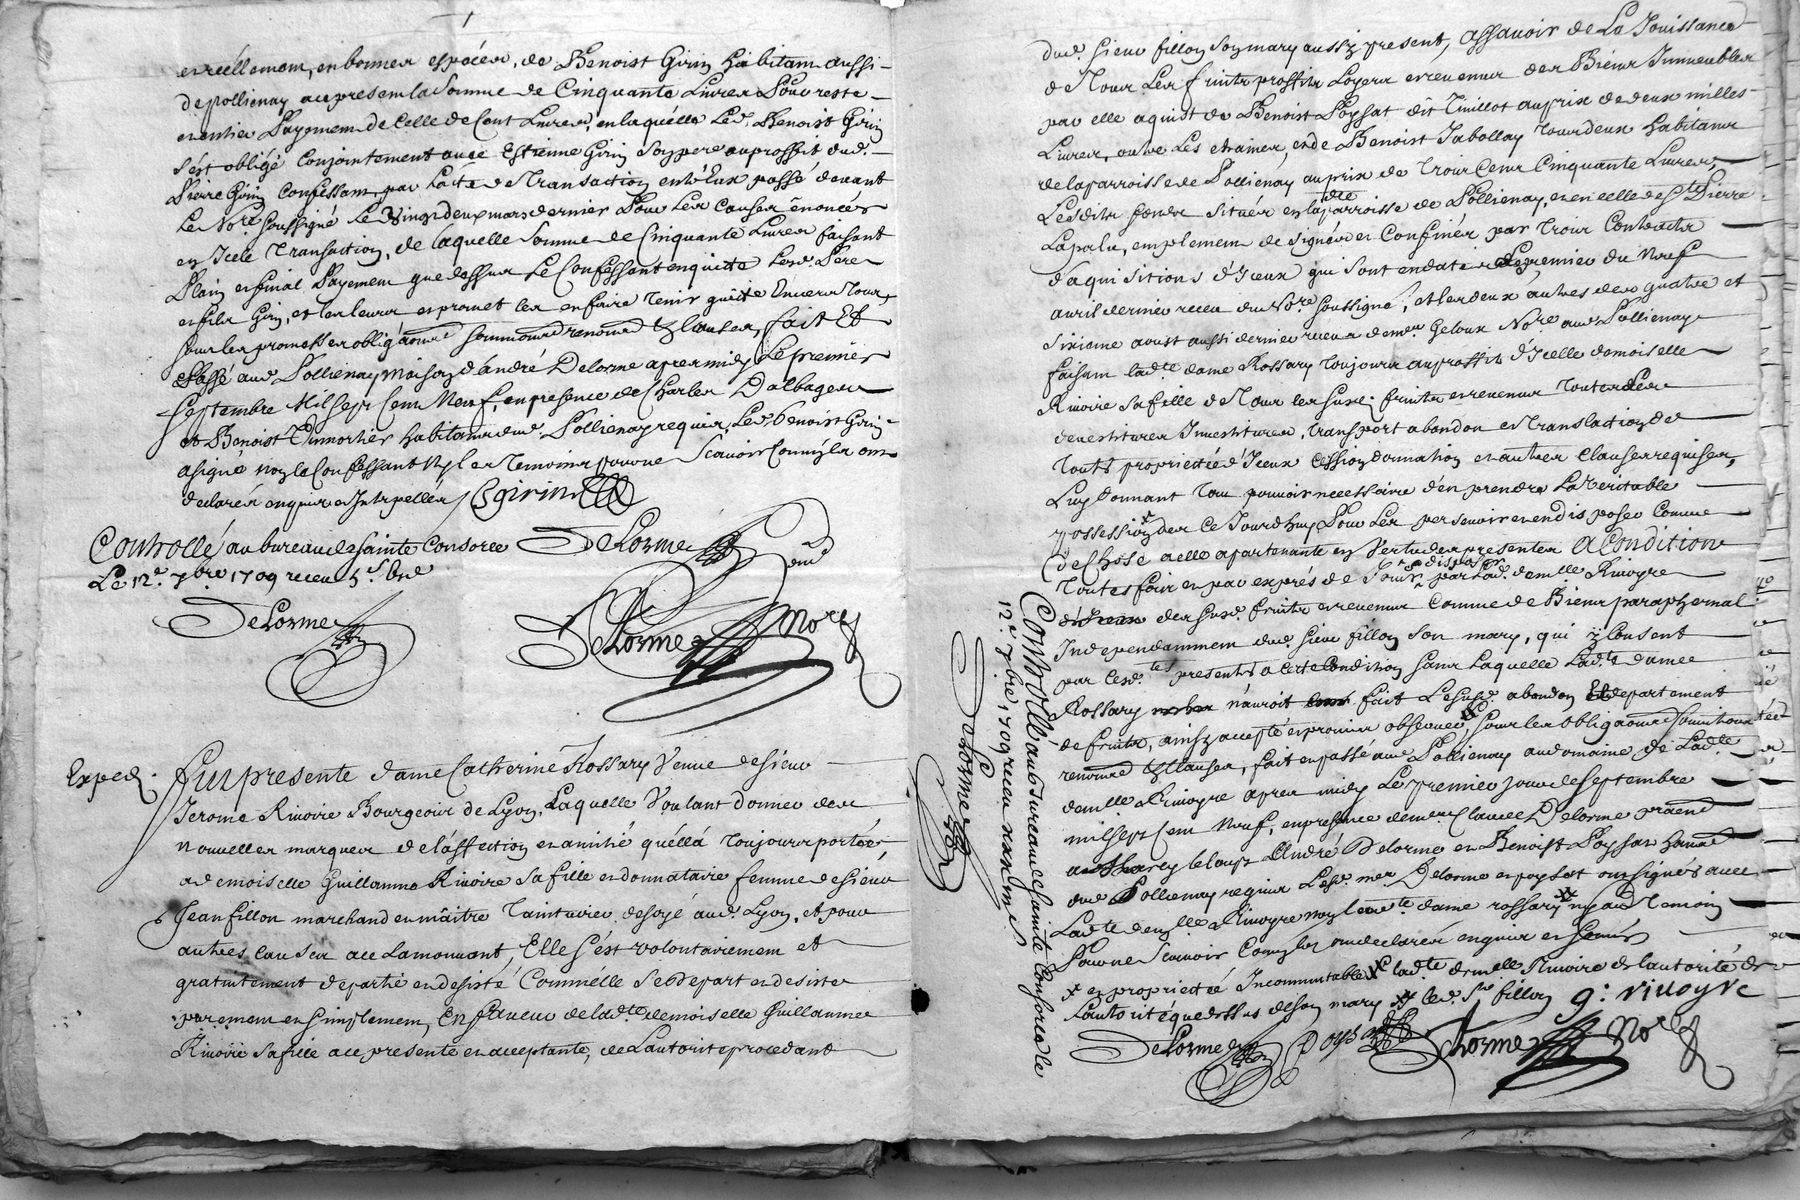 et réellement, en bonnes espéces, de Benoist Girin habitant aussi
de pollienay acepresent la Somme de Cinquante Livres Pour reste
et entier Payement de Celle de Cent Livres, en laquélle Led. Benoist Girin
s'ést obligé Conjointement avec Estienne Girin Son pere au proffit dud.
Pierre Girin Confessant, par l'acte de transaction entr'Eux passé devant
Le No.re Soussigné Le Vingt deux mars dernier Pour Les Causes énoncées
en Icele transaction, de laquelle Somme de Cinquante Livres faisant
Plain et final Payement que dessus Le Confessant en quitte Lesd. Pere
et fils Girin, et les leurs et promet les en faire tenir quitte Envers tous,
Pour les promesses obligâons soummons renonce & clauses, fait Et
Passé aud. Pollienay maison d'andré Delorme apres midy Le premier
Septembre Mil Sept Cent Neuf, en presence de Charles Dalbageur
et Benoist Dumortier habitans dud. Pollienay requis, Led. Benoist Girin
a signé non le Confessant Ny les temoins pour ne Scavoir Comm'ils ont
declarés enquis et Interpellés B girin
Controllé au bureau de Sainte Consorce DeLorme
Le 12.e 7bre 1709 receu 5.s
DeLorme DeLorme No.re
Exped.
fut presente dame Catherine Rossary Veuve de Sieur
Jerome Rivoire Bourgeois de Lyon, Laquelle Voulant donner des
nouvelles marques de l'affection et amitié qu'éll'a toujours portées,
a demoiselle Guillauma Rivoire sa fille et donnataire femme de Sieur
Jean fillon marchand et maître tainturier de soye aud. Lyon, et pour
autres Causes ace La mouvant, Elle S'ést volontairement et
gratuitement departie et desisté Comm'elle Se depart et desiste
purement et Simplement, En faveur de lad.te demoiselle Guillaumee
Rivoire Sa fille ace presente et acceptante, de L'autorité procedant
dud. Sieur fillon Son mary aussy present, assavoir de La Jouissance
de tous Les fruits proffits Loyers et revenus des Biens Immeubles
par elle aquist de Benoist Poysat dit tuillot au prix de deux milles
Livres, outre Les etraines, et de Benoist Jabollay tous deux habitans
de la parroisse de Pollienay au prix de trois Cent Cinquante Livres,
Lesdits fonds situés en lad.te parroisse de Pollienay, et en celle de St. Pierre
Lapalu, emplement designés et Confinés par trois Contracts
d'aquisitions d'Iceux qui sont en date Le premier du Neuf
avril dernier receu du No.re Soussigné, et les deux autres des quatre et
sixieme aoust aussi dernier receus de me. Geloux No.re aud. Pollienay
faisant lad.te dame Rossary toujours au proffit d'Icelle domoiselle
Rivoire Sa fille de tous les Susd. fruits et revenus toutes Les
devestitures Investitures, transport abandon et translation de
toute proprietée d'Iceux Cession donnation et autres Clauses requises,
Luy donnant tout pouvoir necessaire d'en prendre La Veritable
possession des Ce Jourdhuy Pour Les percevoir et en disposer Comme
de Chose a elle apartenante en Vertu des presentes A Condition
toutes fois et par exprés de Jouir disposer par lad. demlle Rivoyre
des Susd. fruits et revenus Comme de Biens paraphernal
Independamment dud. Sieur fillon Son mary, qui y Consent
par Cesd.tes presentes a cete Condition Sans Laquelle Lad.te dame
Rossary n'auroit fait Le Susd. abandon Et departement
de fruits, ainsy accepté et promis observer, Pour les obligâons Soumissions
renonce & Clauses, fait et passé aud. Pollienay au domaine de Lad.te
demlle Rivoyre apres midy Le premier Jour de Septembre
mil Sept Cent Neuf, en presence de me. Claude Delorme
André Delorme et Benoist Poysat
dud. Pollienay requis Lesd. mes. Delorme et poysat ont signés avec
Lad.te demlle Rivoyre non lad.te dame rossary ny aud. temoin
Pour ne Scavoir Comm'ils ont declarés enquis et
x et proprietée Incommutable x lad.te demlle Rivoire de l'autorité de
L'autorité que dessus de Son mary x led. Sr. fillon g. rivoyre
DeLorme Poysat DeLorme No.re
Controllé au bureau de Sainte Consorce le
12.e 7bre 1709 receu
DeLorme